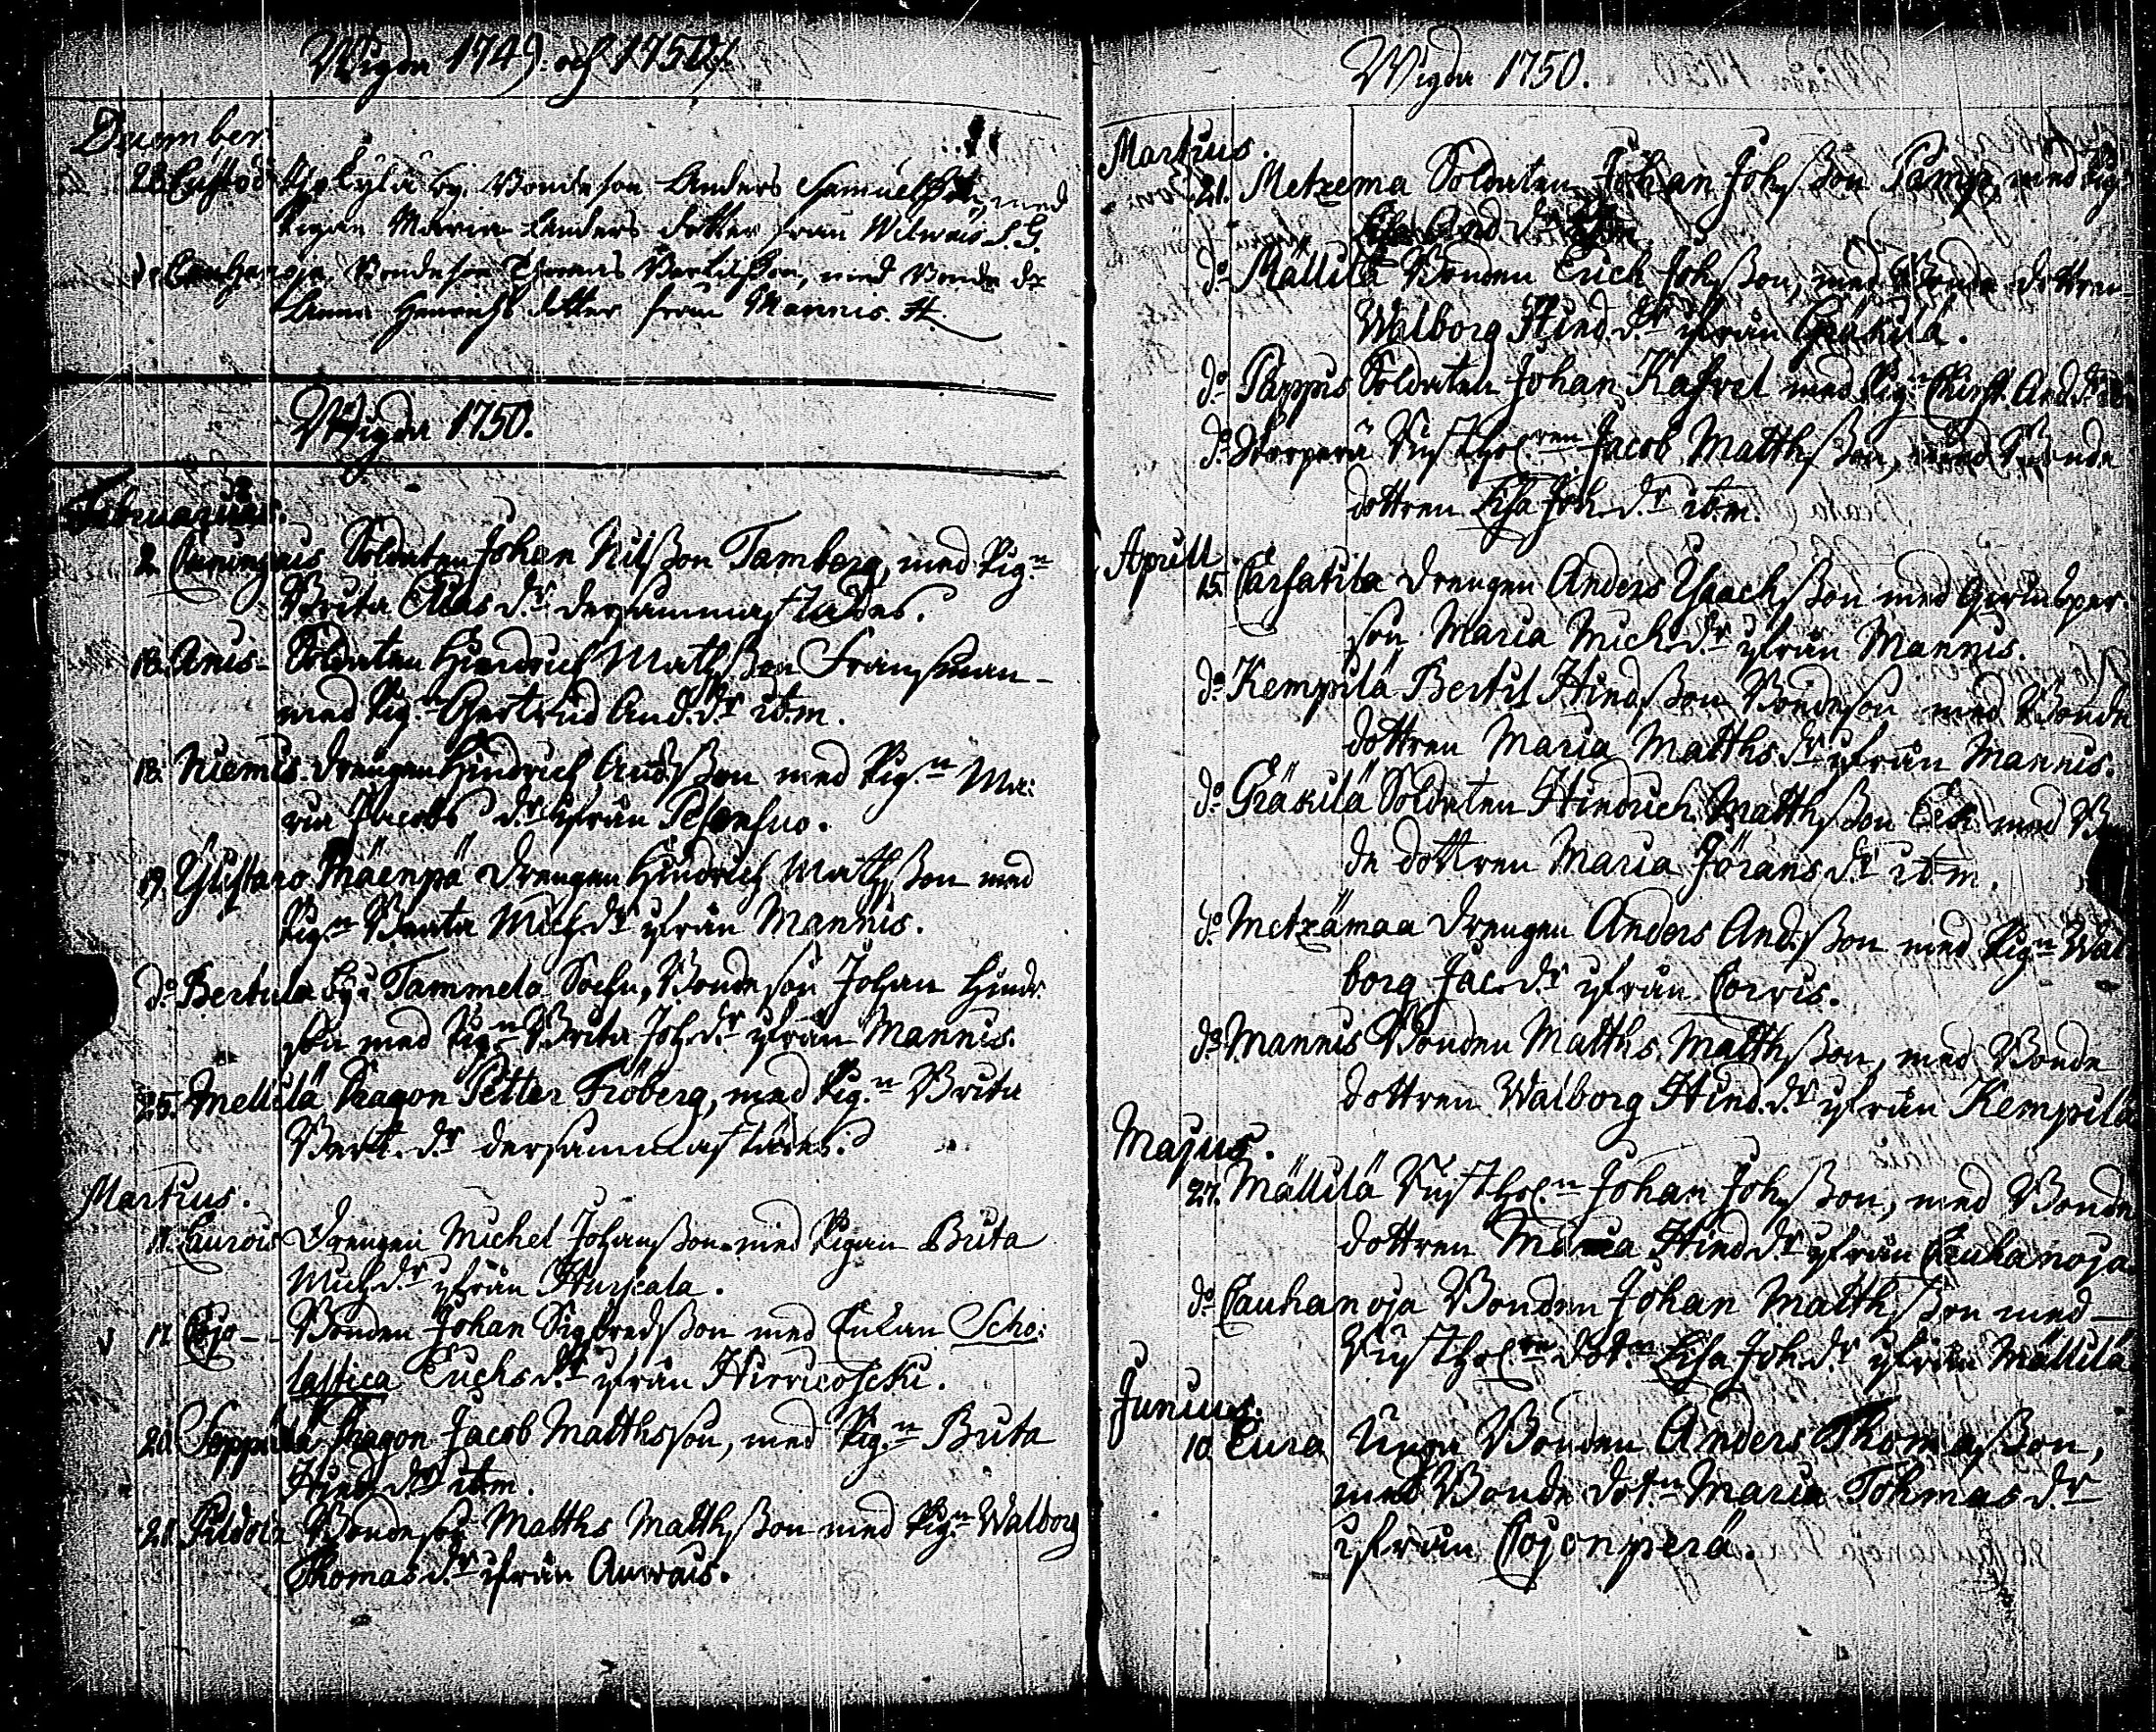 Wigde 1749. och 1750.
December
28. by. Bondeson Anders Samuelsson, med
Pigan Maria Anders dotter från
do Bondeson Thomas Bertilsson, med Bonde dr
Anna Henrichs dotter från Mannis.
Wigde 1750.
Februarius.
2. Soldaten Johan Nilsson Tamberg, med Pig.n
Brita Elias d.r dersammastädes.
18. Anis- Soldaten Hindrich Mathsson Fransman
med Pig.n Gertrud And. dr itm.
18. Niemis drengen Hindrich Andsson med Pig.n Ma:
ria Jacobs d.r ifrån
19. Mäenpä drengen Hindrich Mathsson med
Pig.n Beata Mich dr ifrån Mannis.
do Bertula by i Tammela Sochn, Bondeson Johan Hindr.
son med Pig.n Brita Joh. dr ifrån Mannis.
25. Mellilä Dragon Petter Fröberg, med Pig.n Brita
Bert. d.r dersammastädes.
Martius.
11. Laurois Drengen Michel Johansson med Pigan Brita
Mich dr ifrån Hurskala.
17. Cojo - Bonden Johan Sigfredsson med Enkan Scho:
lastica Erichs d.r ifrån
20. Dragon Jacob Matthsson, med Pig.n Brita
Hind. d.r itm.
21. Bondeson Matths Matthsson med Pig.n Walborg
Thomas d.r ifrån Auvais.
Wigde 1750.
Martius.
21. Metzema Soldaten Johan Johsson Pamp, med Pig.
And dr itm.
do Mällilä Bonden Erich Johsson, med Bonde dottren
Walborg Hind. d.r ifrån Gräkilä.
do Pappus Soldaten Johan Kafvel med Pig.n Christ. And. dr
do Rusthol.ren Jacob Matthsson, med Bonde
dottren Lisa Joh. d.r itm.
Aprill
15. drengen Anders Isachsson med
son Maria Mich. d.r ifrån Mannis.
do Kempilä Bertil Hindsson Bondeson med Bonde
dottren Maria Matths dr ifrån Mannis.
do Gräkilä Soldaten Hindrich Matthsson Eek med B
de dottren Maria Jörans d.r itm.
do Metzämaa drengen Anders Andsson med Pig.n Wal
borg Jac. d.r ifrån Corvis.
do Mannis Bonden Matths Matthsson, med Bonde
dottren Walborg Hind. d.r ifrån Kempilä
Majus.
27. Mällilä Rusthol.n Johan Johsson, med Bonde
dottren Maria Hind. dr ifrån Cauhanoja
do Cauhanoja Bonden Johan Matthsson med
Rusthol.rn dot.n Lisa Joh. d.r ifrån Mällilä
Junius.
10. Eura Unga Bonden Anders Thomasson,
med Bonde dot.n Maria Tohmas d.r
ifrån Cojonperä.